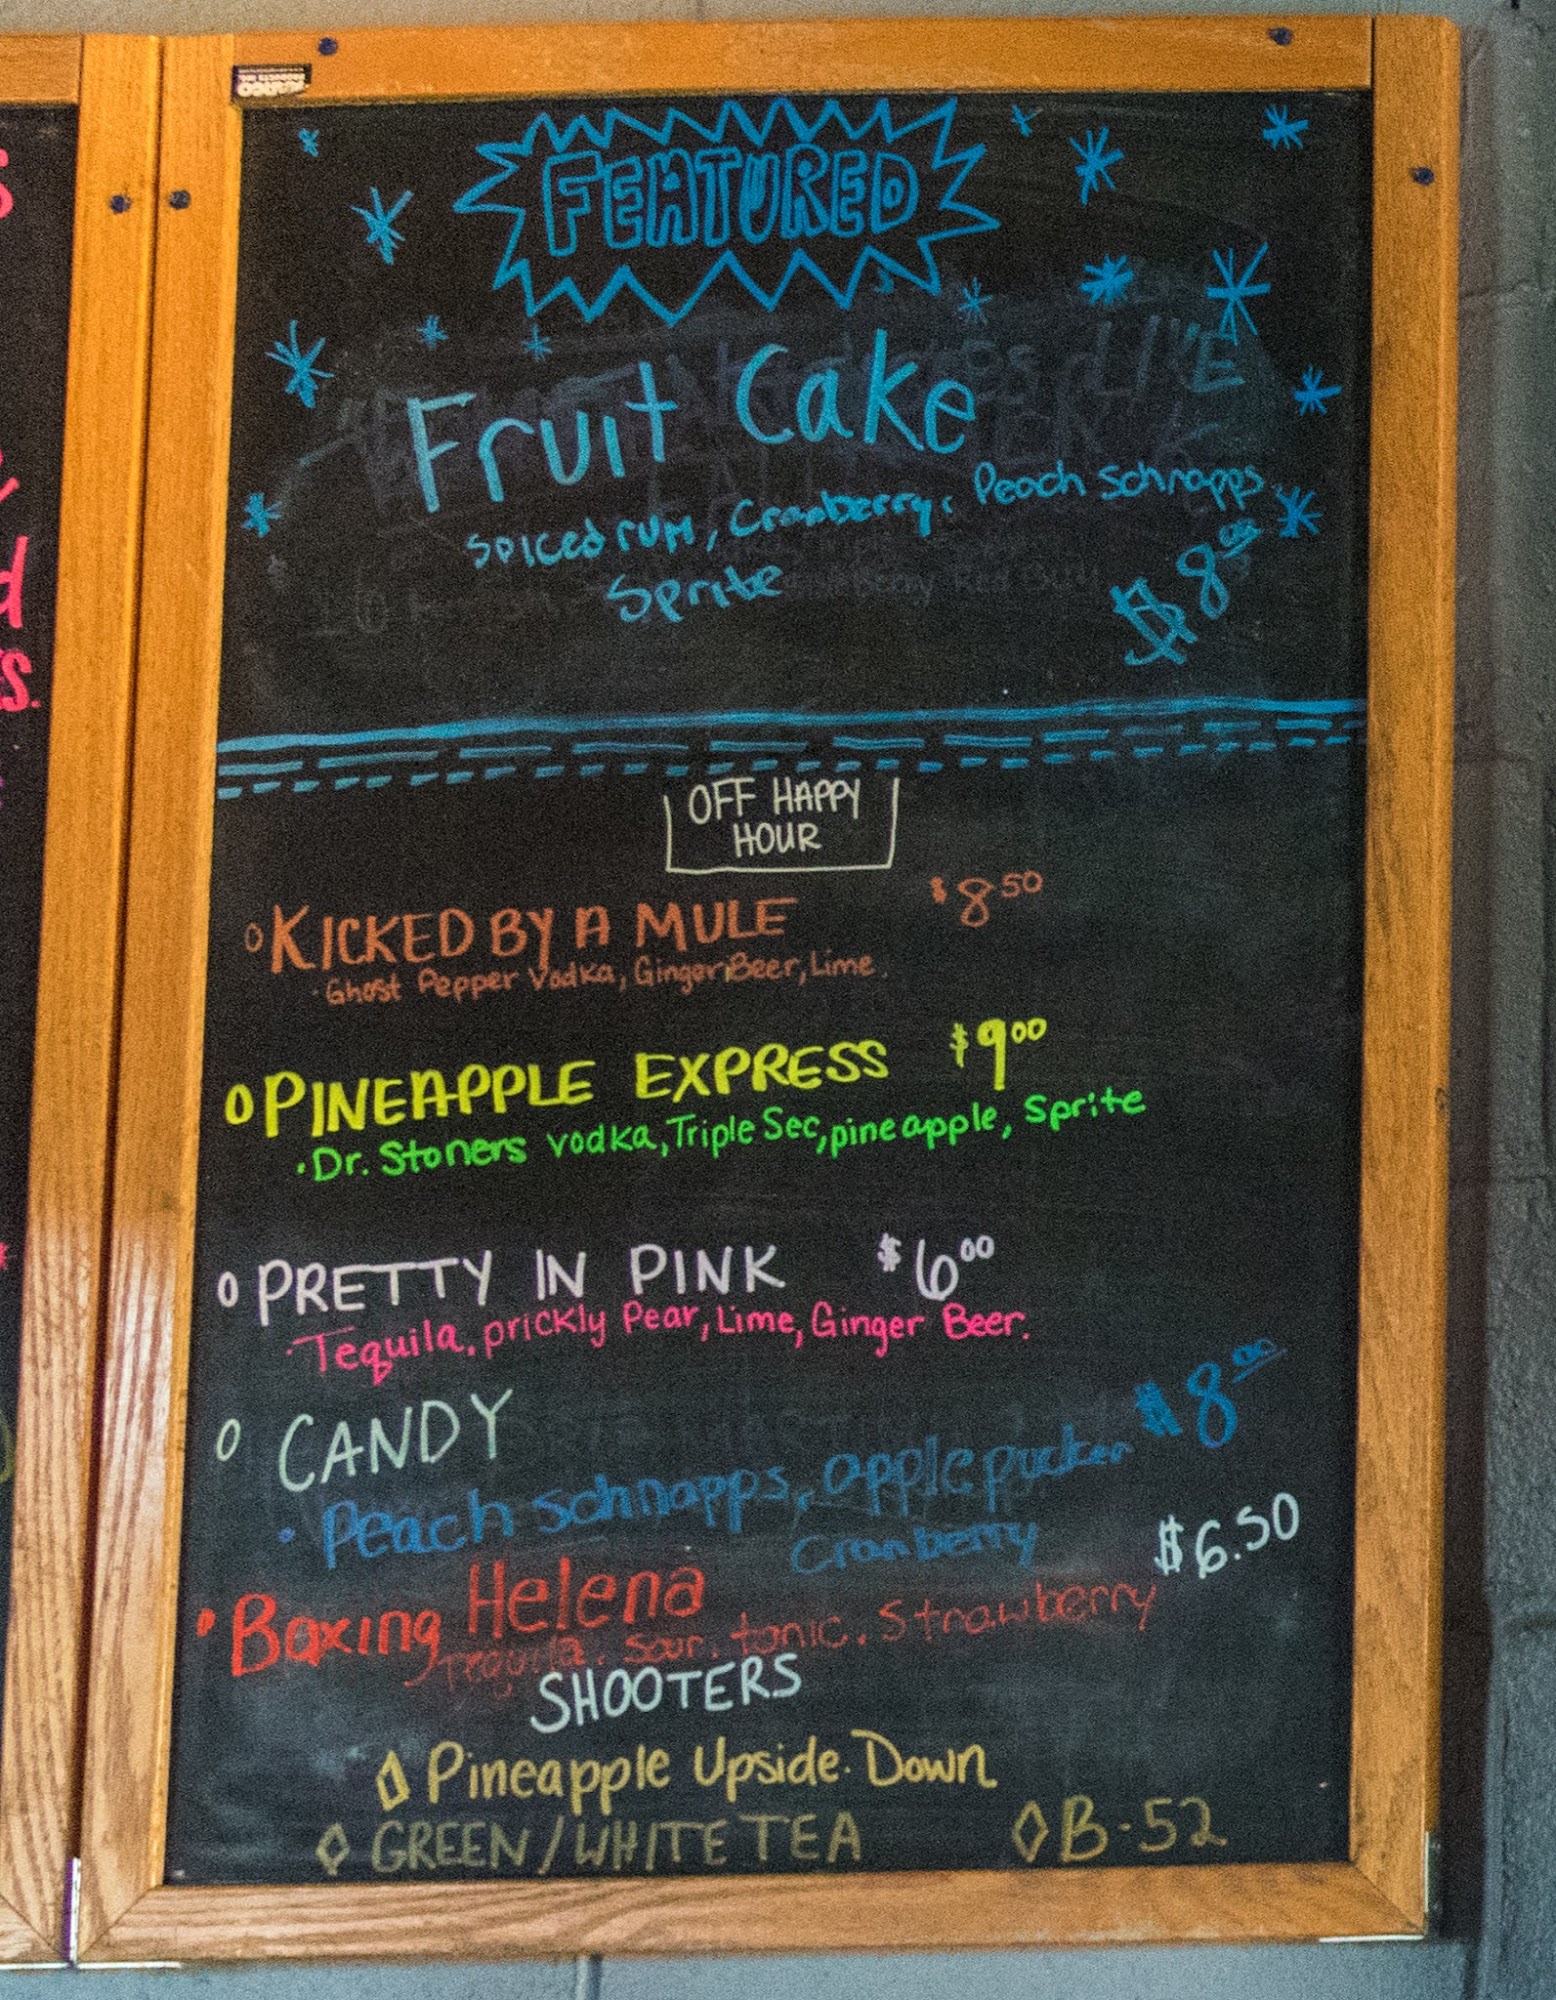 FEATURED
Fruit Cake
Spiced rum, Cranberry, Peach Schnapps
Sprite
$8.00
OFF HAPPY
HOUR
KICKED BY A MULE $8.50
· Ghost Pepper Vodka, Ginger Beer, Lime.
PINEAPPLE EXPRESS $9.00
· Dr. Stoners vodka, Triple Sec, pineapple, Sprite
PRETTY IN PINK $6.00
· Tequila, prickly Pear, Lime, Ginger Beer.
CANDY $8.00
· Peach schnapps, apple pucker
Cranberry
Boxing Helena $6.50
Tequila. sour. tonic. Strawberry
SHOOTERS
Pineapple Upside-Down
GREEN/WHITE TEA B-52